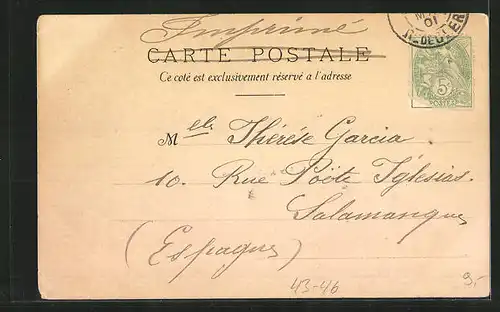 Imprimé
CARTE POSTALE
Ce coté est exclusivement réservé a l'adresse
01
5
POSTES
Melle Thérèse Garcia
10. Rue Poëte Iglesias.
Salamanque
(Espagne)
43-46
9,-